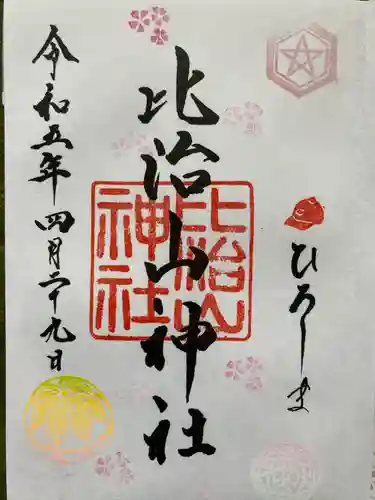 ひろしま
比治山神社
比治山
神社
令和五年四月二十九日